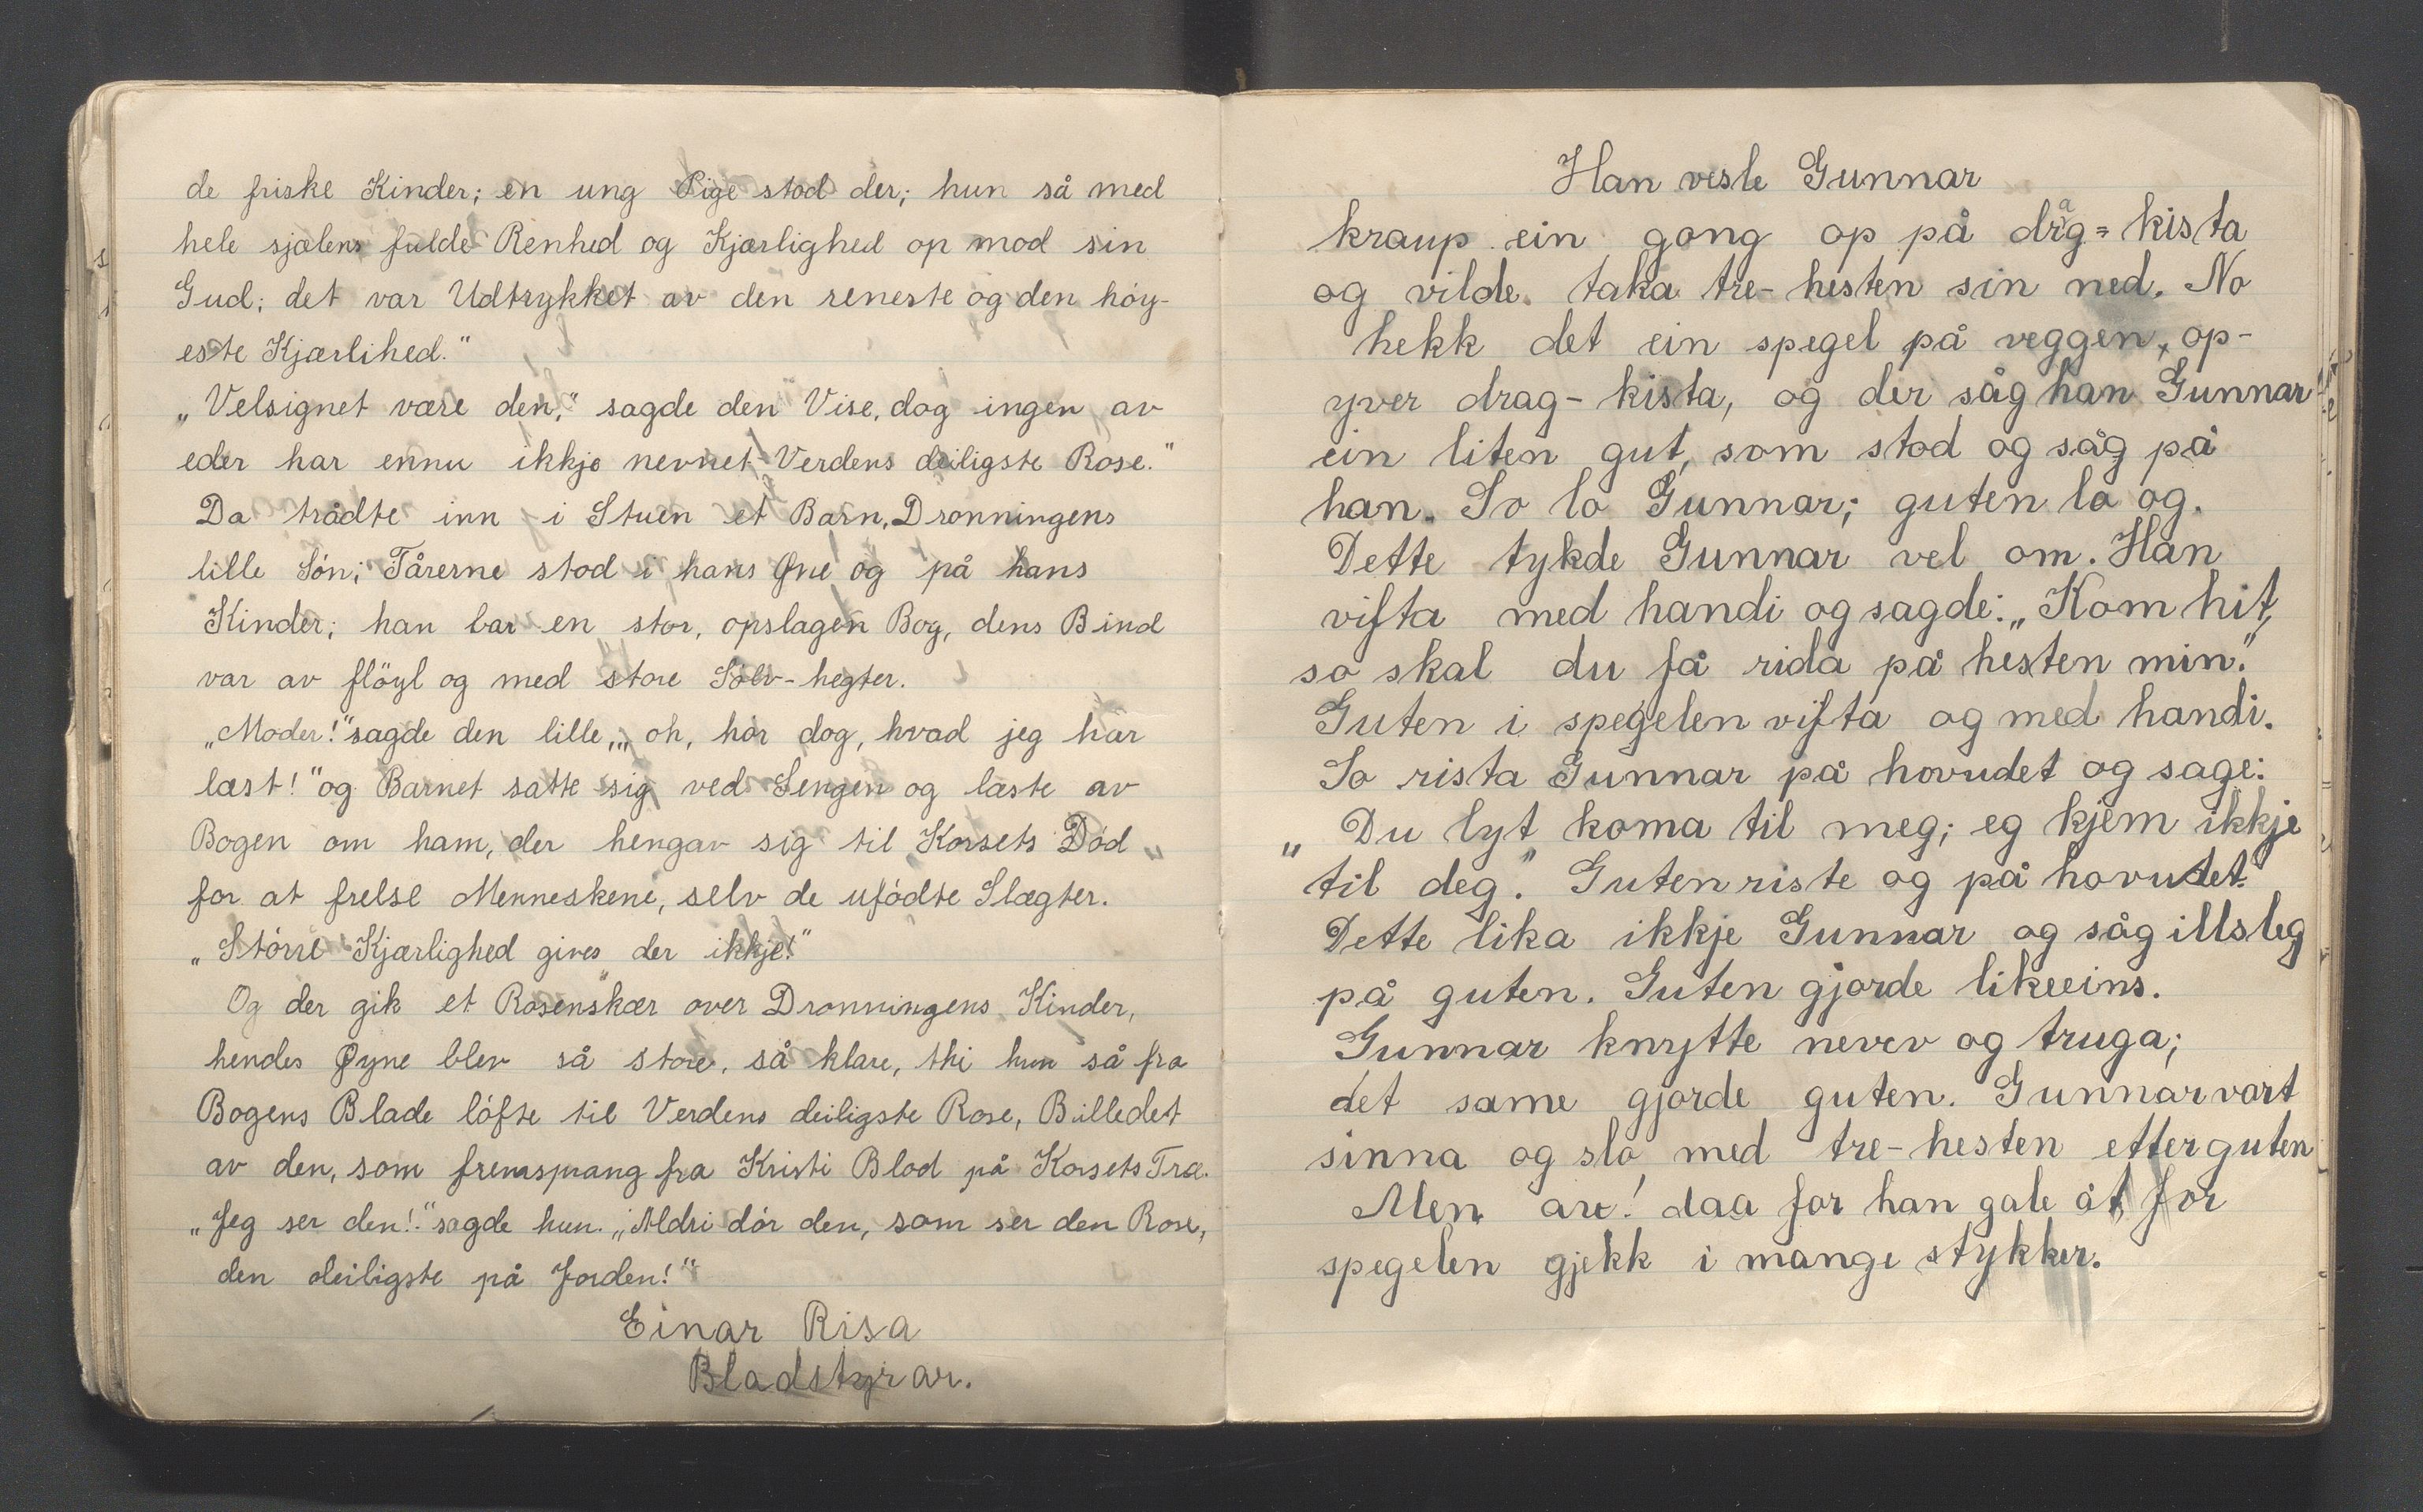 de friske Kinder; en ung Pige stod der; hun så med
hele sjælens fulde Renhed og Kjærlighed op mod sin
Gud; det var Udtrykket av den reneste og den höy-
este Kjærlihed."
„Velsignet være den," sagde den Vise, dog ingen av
eder har ennu ikkje nevnet Verdens deiligste Rose."
Da trådte inn i Stuen et Barn, Dronningens
lille Sön; Tårerne stod i hans Øne og på hans
Kinder; han bar en stor, opslagen Bog, dens Bind
var av flöyl og med store Sölv-hegter.
„Moder!" sagde den lille, „oh, hör dog, hvad jeg har
læst!" og Barnet satte sig ved Sengen og læste av
Bogen om ham, der hengav sig til Korsets Död
for at frelse Menneskene, selv de ufödte Slægter.
„Större Kjærlighed gives der ikkje!"
Og der gik et Rosenskær over Dronningens Kinder,
hendes Øyne blev så store, så klare, thi hun så fra
Bogens Blade löfte til Verdens deiligste Rose, Billedet
av den, som fremsprang fra Kristi Blod på Korsets Træ.
„Jeg ser den!" sagde hun. „Aldri dör den, som ser den Rose,
den deiligste på Jorden!"
Einar Risa
Bladstyrar.
Han vesle Gunnar
kraup ein gong op på drag-kista
og vilde taka tre-hesten sin ned. No
hekk det ein spegel på veggen, op-
yver drag-kista, og der såg han Gunnar
ein liten gut, som stod og såg på
han. So lo Gunnar; guten lo og.
Dette tykde Gunnar vel om. Han
vifta med handi og sagde: „Kom hit,
so skal du få rida på hesten min."
Guten i spegelen vifta og med handi.
So rista Gunnar på hovudet og sage:
„Du lyt koma til meg; eg kjem ikkje
til deg." Guten riste og på hovudet.
Dette lika ikkje Gunnar og såg illsleg
på guten. Guten gjorde likeeins.
Gunnar knytte neven og truga;
det same gjorde guten. Gunnar vart
sinna og slo med tre-hesten etter guten
Men au! daa for han gale åt, for
spegelen gjekk i mange stykker.